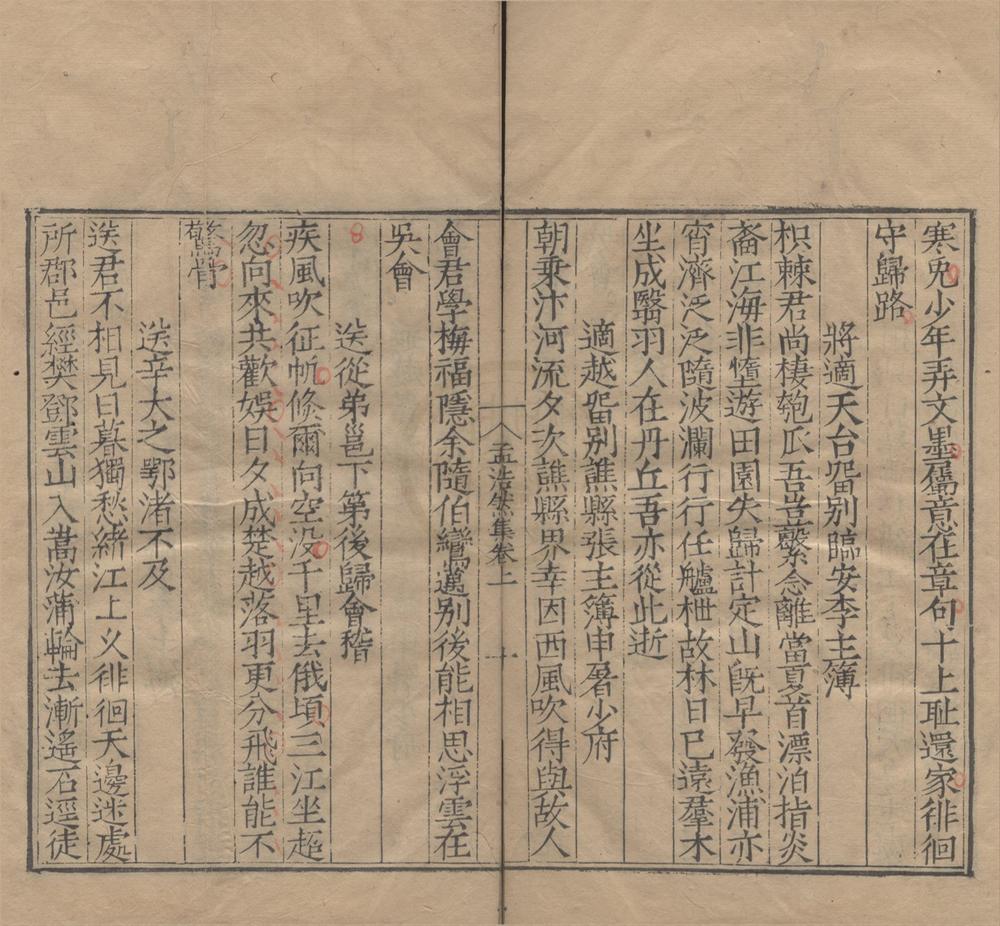 寒兎少年弄文墨屬意在章句十上耻還家徘徊
守歸路
將適天台畱别臨安李主簿
枳棘君尚棲匏瓜吾豈繫念離當夏首漂泊指炎
裔江海非惰遊田園失歸計定山旣早發漁浦亦
宵濟泛泛隨波瀾行行任艫枻故林日已遠羣木
坐成翳羽人在丹丘吾亦從此逝
適越畱别譙縣張主簿申屠少府
朝乗汴河流夕次譙縣界幸因西風吹得與故人
會君學梅福隱余隨伯鸞邁别後能相思浮雲在
吳會
孟浩然集卷上
十
送從弟邕下第後歸會稽
疾風吹征帆倐爾向空没千里去俄頃三江坐超
忽向來共歡娛日夕成楚越落羽更分飛誰能不
驚骨
送辛大之鄂渚不及
送君不相見日暮獨愁緒江上乂徘徊天邊迷處
所郡邑經樊鄧雲山入嵩汝蒲輪去漸遙石逕徒